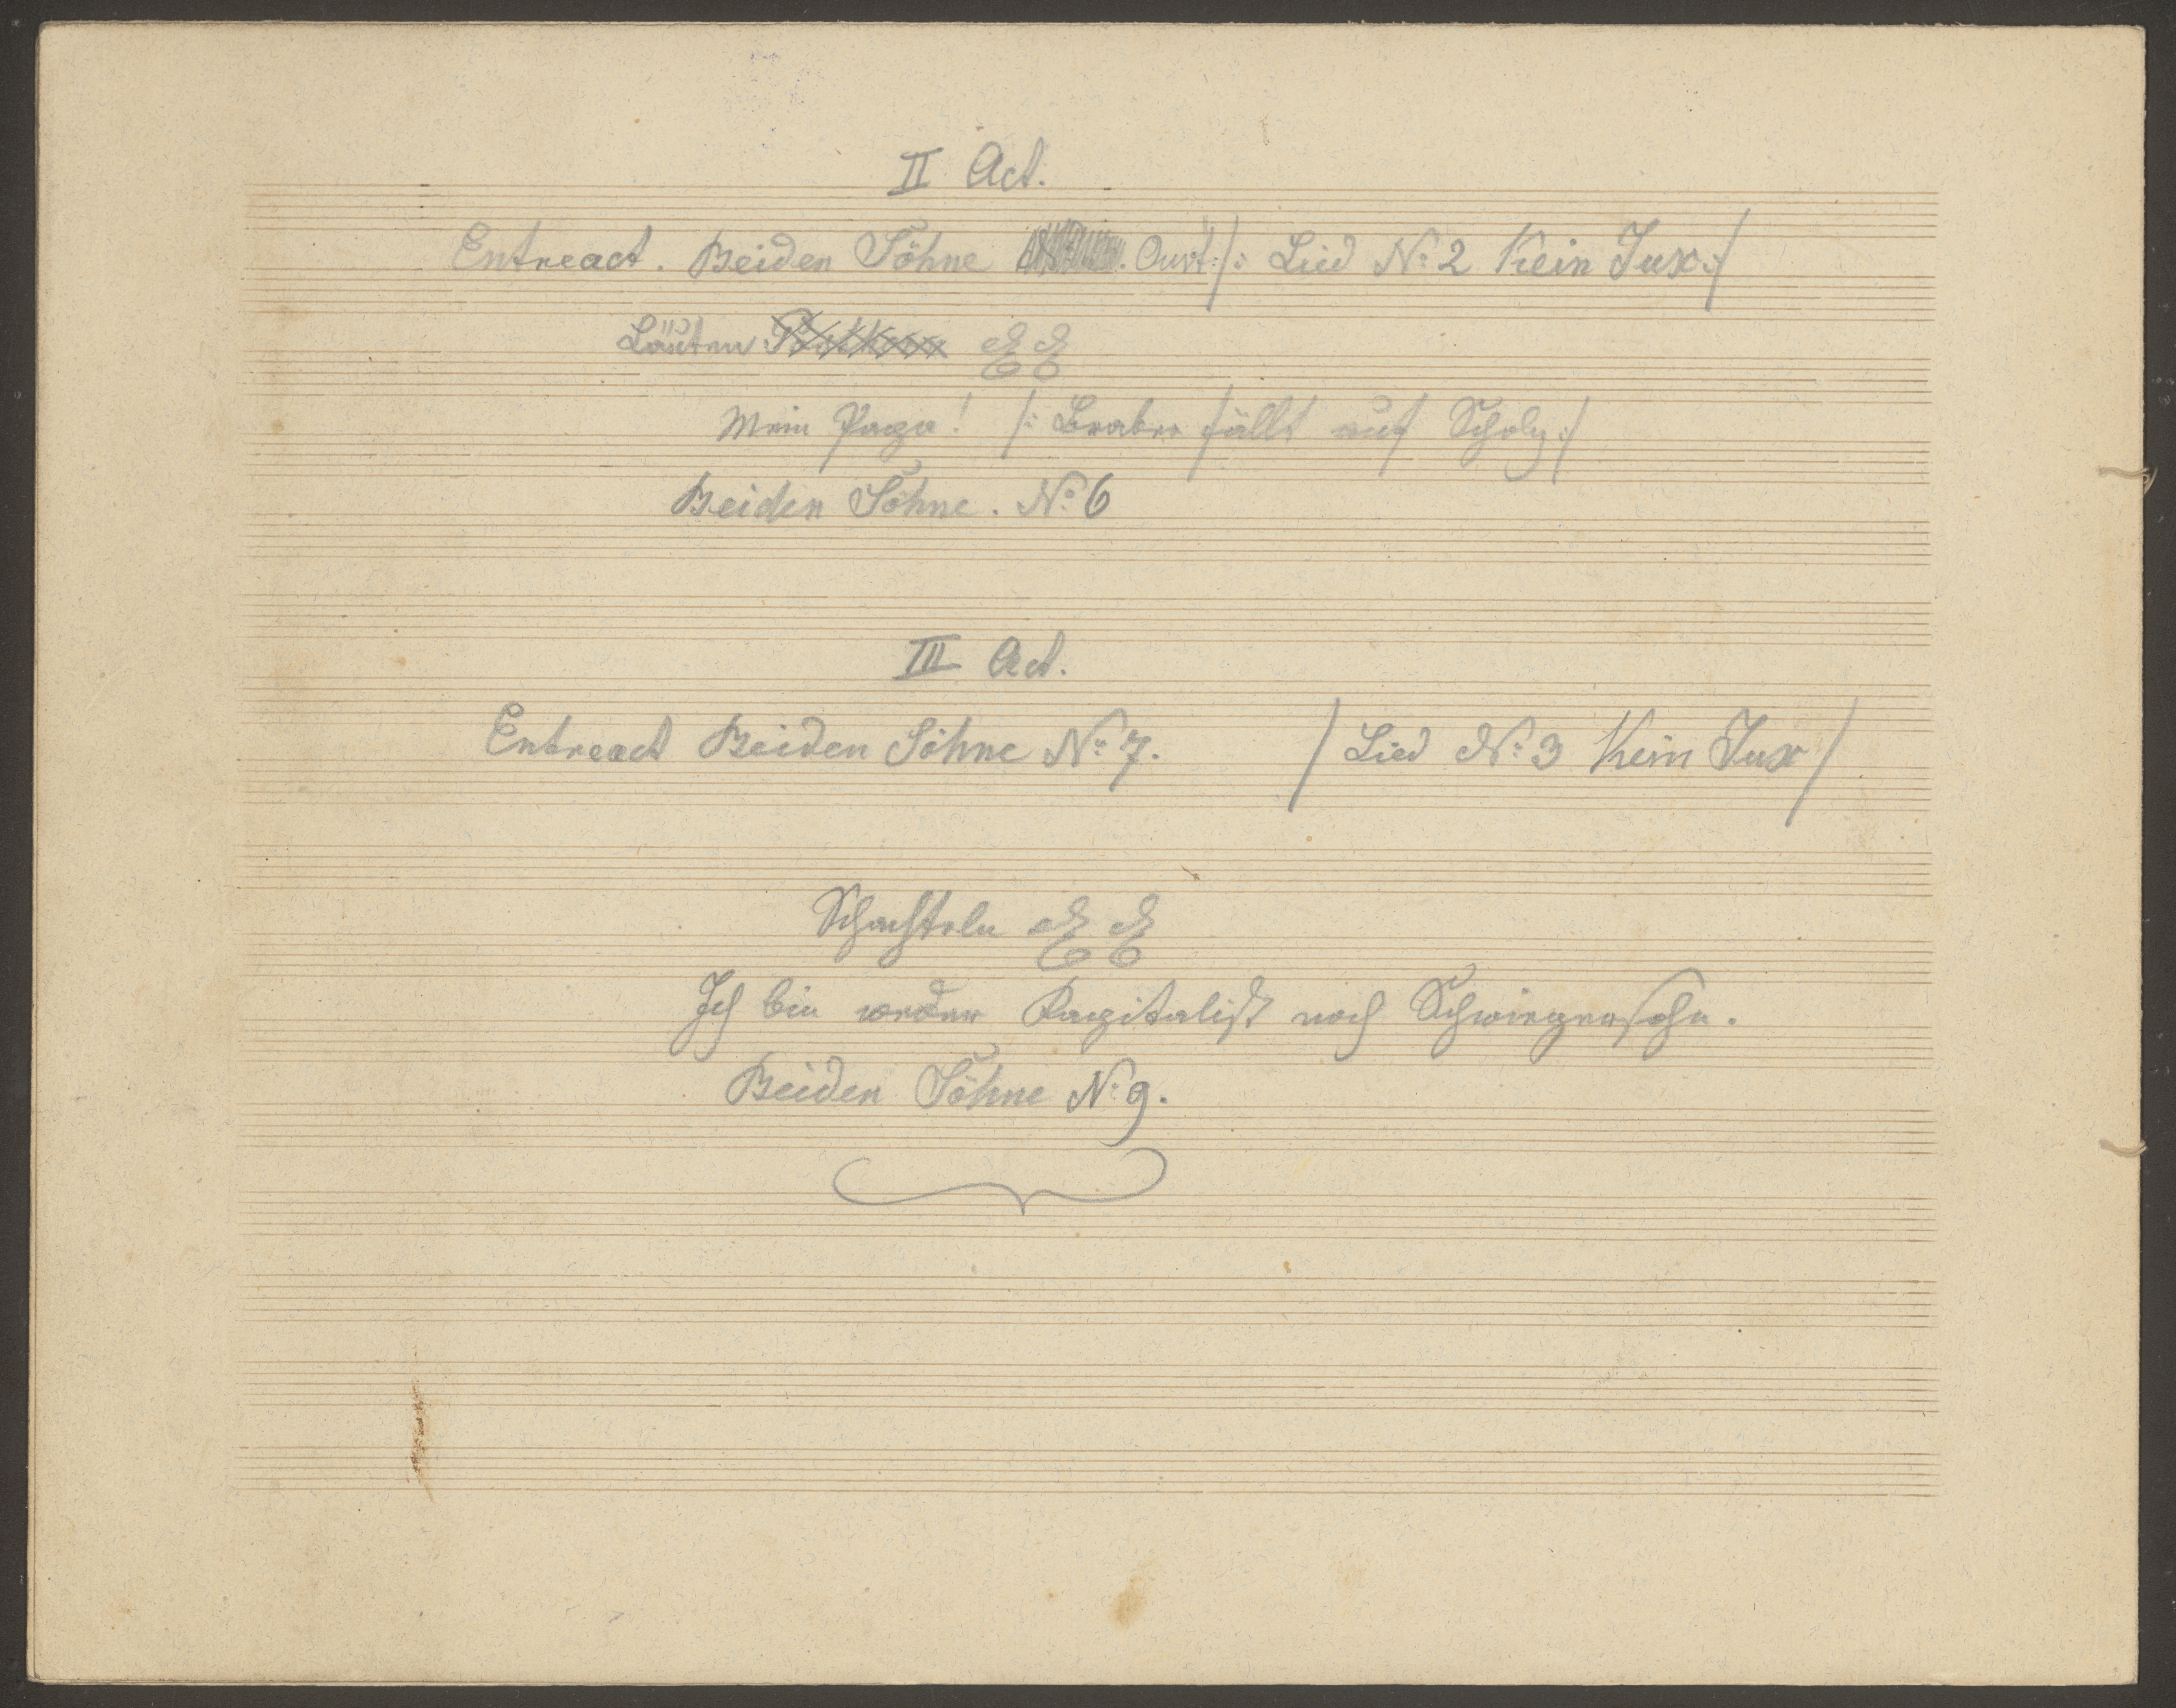 II Act.
Entreact. Beiden Söhne Auft: /: Lied No: 2 Kein Jux :/
Läuten
Mein Papa! /: Braber fällt auf Scholz :/
Beiden Söhne. No: 6
III Act.
Entreact Beiden Söhne No: 7. / Lied No: 3 Kein Jux /
Schachteln
Ich bin weder Kapitalist noch Schwiegersohn.
Beiden Söhne No: 9.